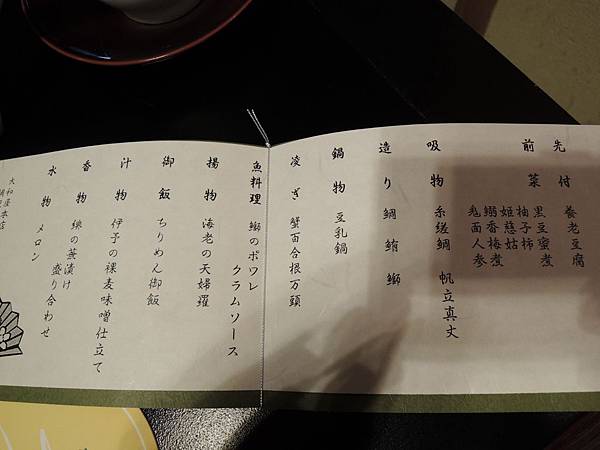 先付 養老豆腐
前菜 黒豆蜜煮
柚子柿
姫慈姑
鰯香梅煮
兎面人参
吸物 糸縒鯛 帆立真丈
造り 鯛 鮪 鰤
鍋物 豆乳鍋
凌ぎ 蟹百合根万頭
魚料理 鰤のポワレ
クラムソース
揚物 海老の天婦羅
御飯 ちりめん御飯
汁物 伊予の裸麦味噌仕立て
香物 緋の蕪漬け
盛り合わせ
水物 メロン
大和屋本店